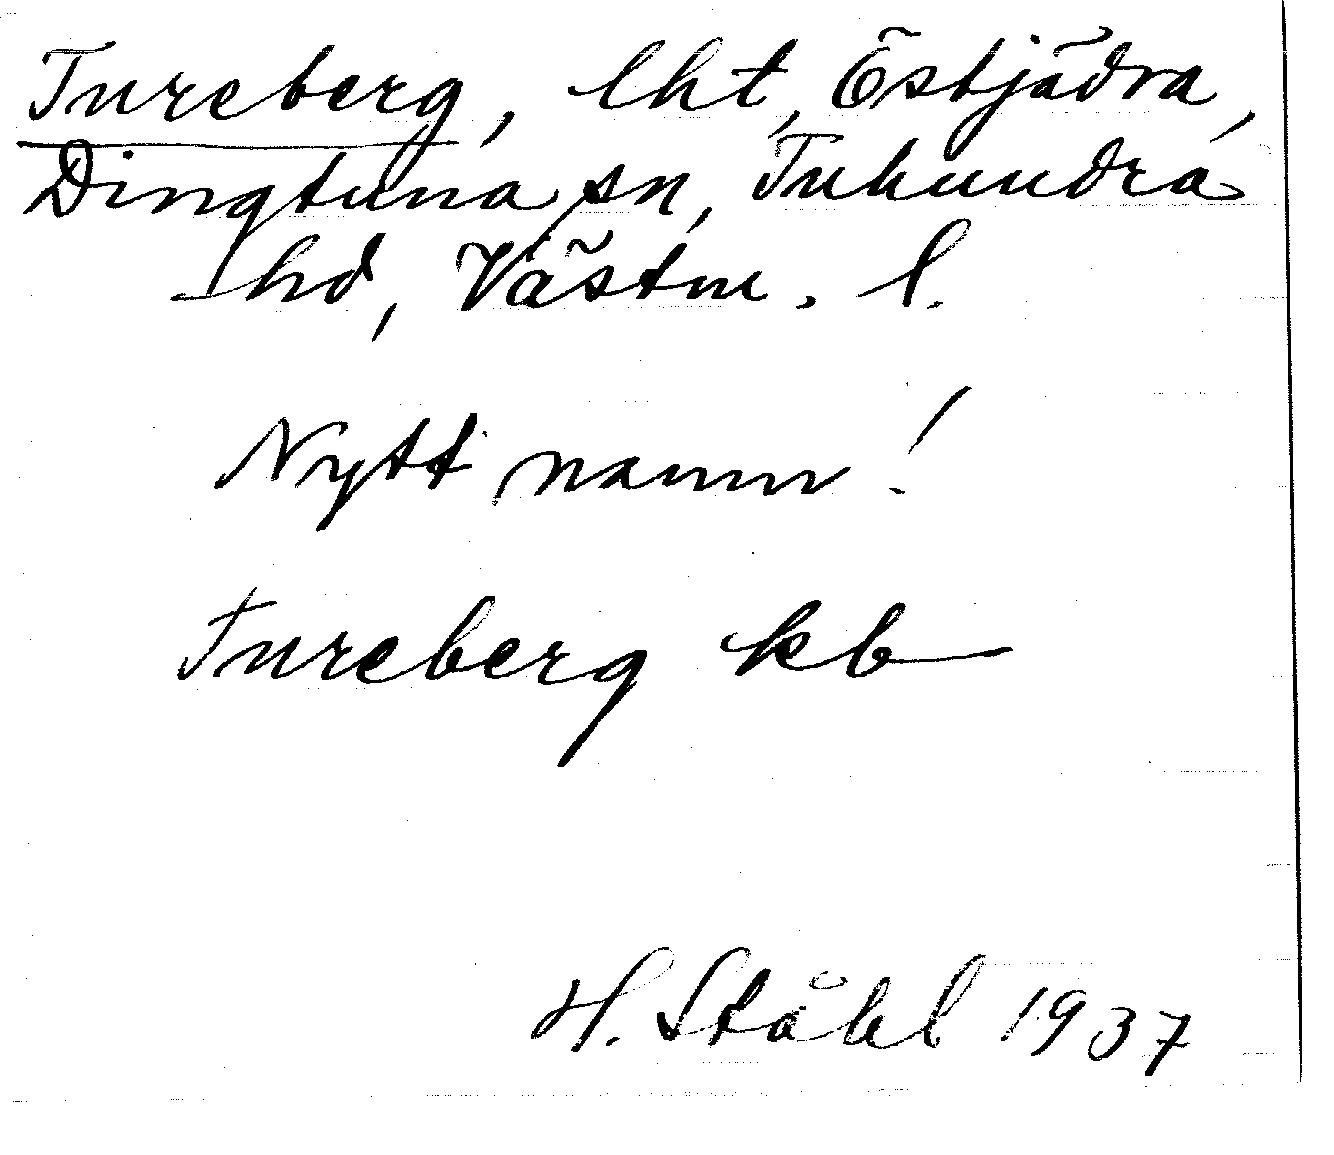 Tureberg, lht, Östjädra,
Dingtuna sn, Tuhundra
hd, Västm. l.
Nytt namn!
Tureberg kb
H. Ståhl 1937